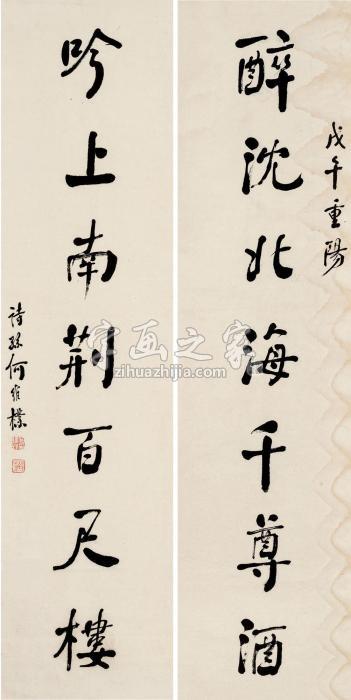 戊午重陽
醉沈北海千尊酒
吟上南荆百尺樓
詩孫何維樸
字画之家
zihuazhijia.com